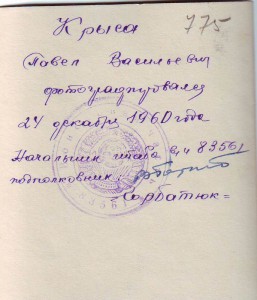 Крыса
775
Павел Васильевич
фотографировался
24 декабря 1960 года
Начальник штаба в/ч 83561
подполковник:
Горбатюк=